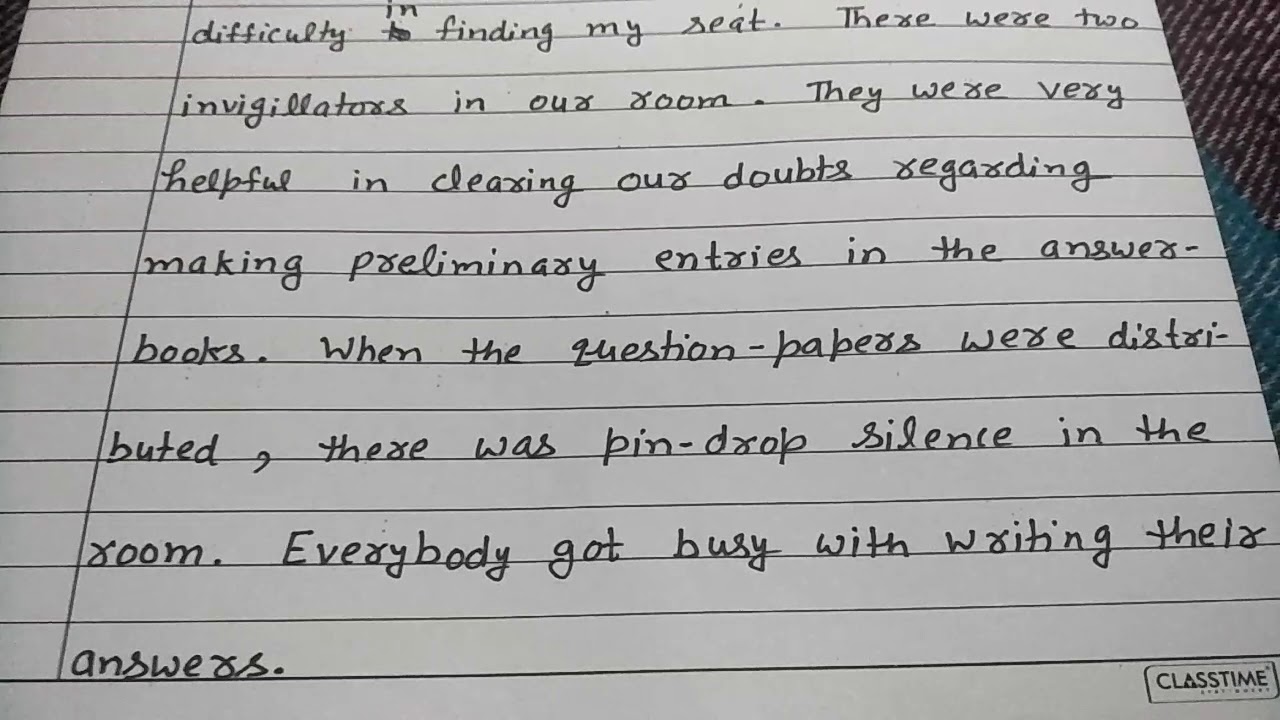 difficulty in finding my seat. There were two
invigillators in our room. They were very
helpful in clearing our doubts regarding
making preliminary entries in the answer-
books. When the question-papers were distri-
buted, there was pin-drop silence in the
room. Everybody got busy with writing their
answers.
CLASSTIME